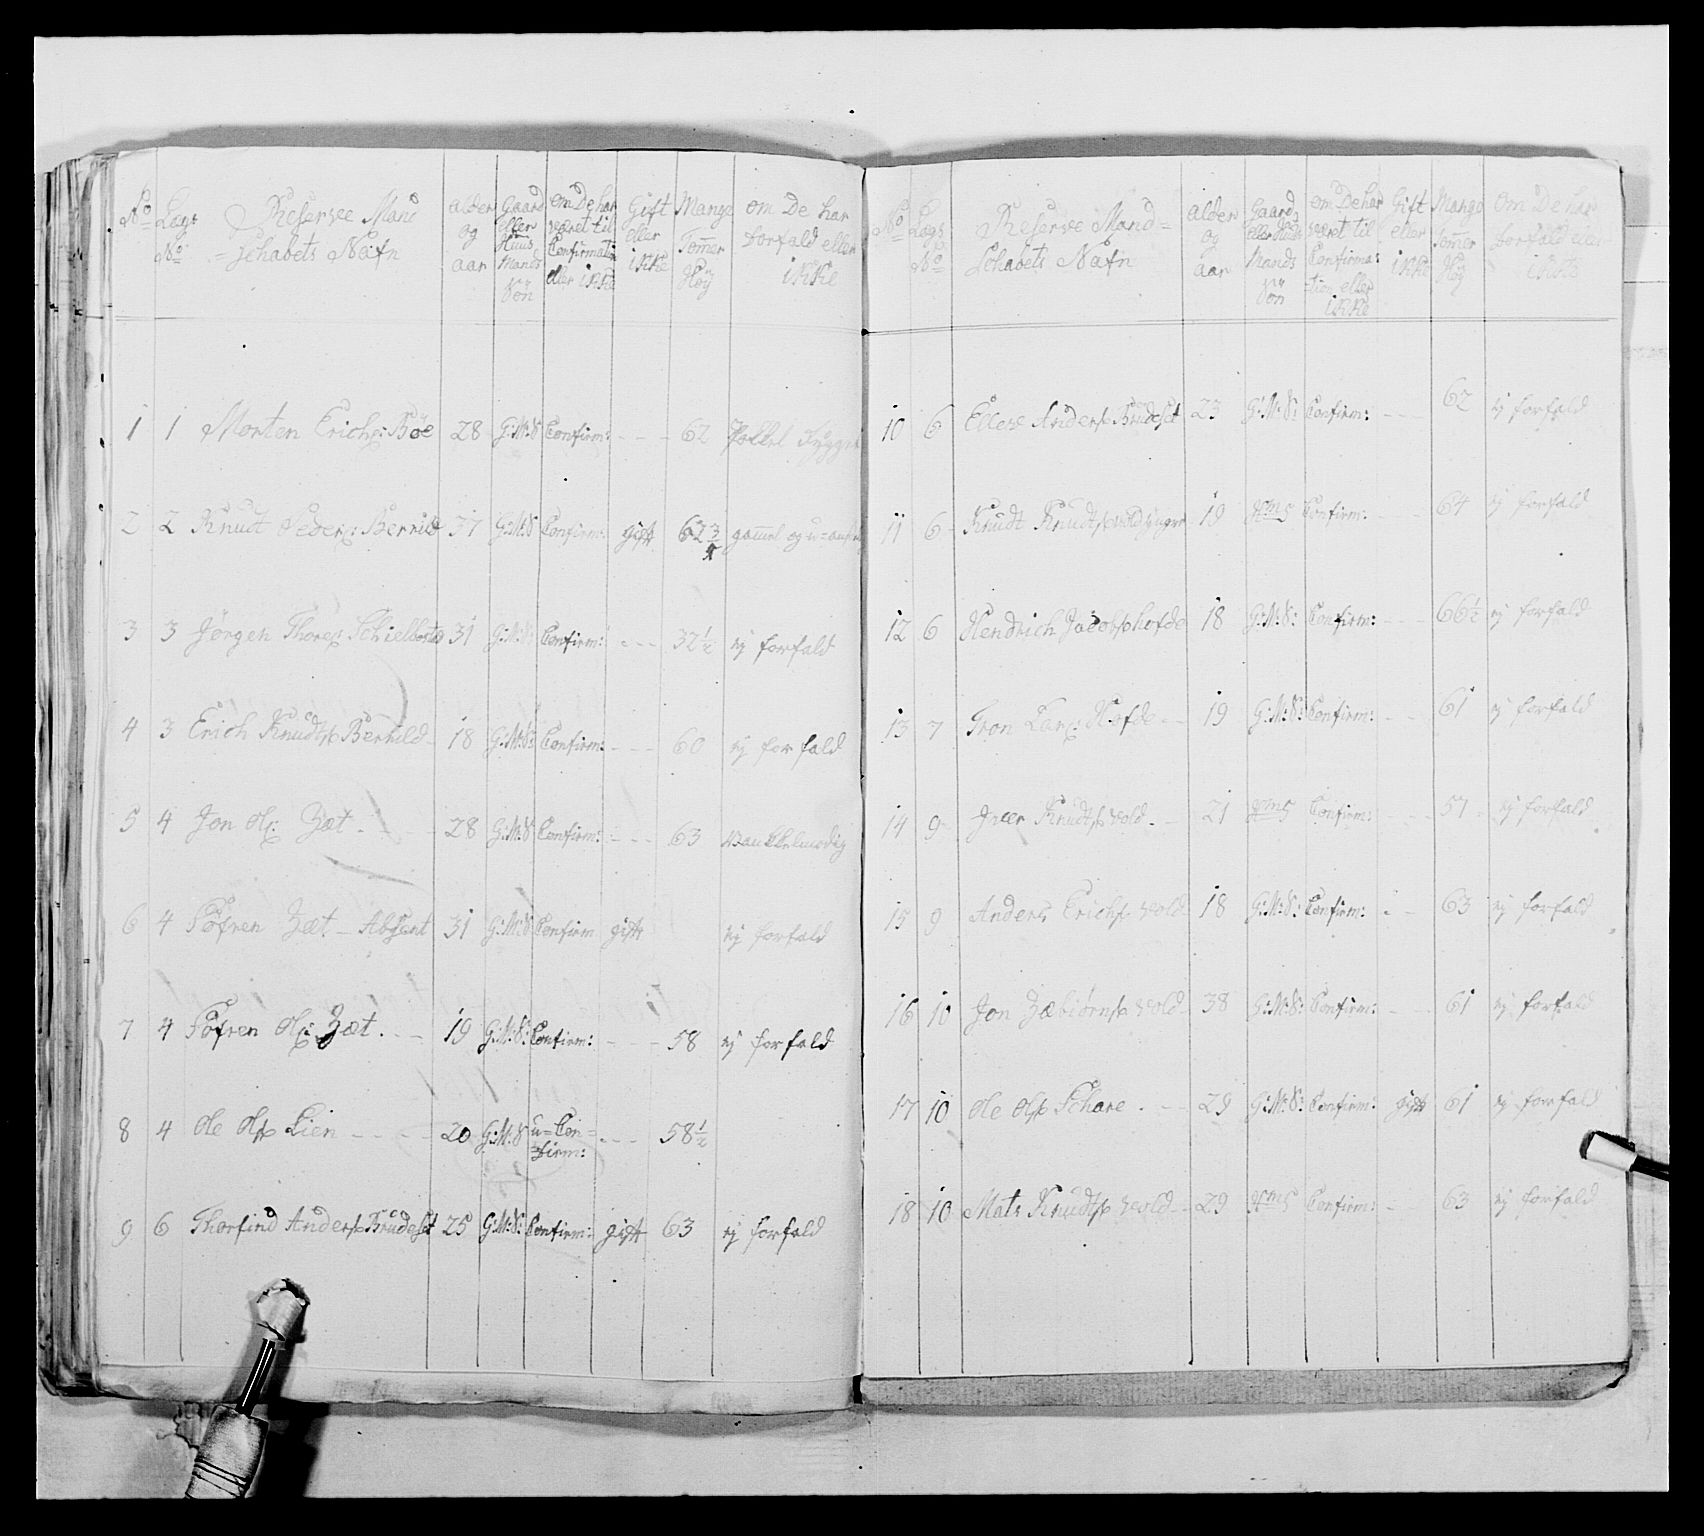 No Lægs No Reserve Mand=Schabets Nafn alder og aar Gaard eller Huus Mands Sön om De har været til Confirmation eller ikke Gift eller ikke Mange Tommer Höy om De har forfald eller ikke
1 1 Morten Erichs: Böe 28 G:M:S Confirm: - - - 62
2 2 Knud Peders: Berrild 37 G:M:S Confirm: gift 62 3/4 gammel og
3 3 Jørgen Thores: 31 G:M:S: Confirm: - - - 32 1/2 ej forfald
4 3 Erich Knuds: Berrild 18 G:M:S: Confirm: - - - 60 ej forfald
5 4 Jon Ols: Zæt - 28 G:M:S Confirm: - - - 63 Vanckelmodig
6 4 Söfren Zæt - Absent 31 G:M:S Confirm gift ej forfald
7 4 Söfren Ols: Zæt. - - 19 G:M:S: Confirm: - - - 58 ej forfald
8 4 Ole Ols: Lien - - - - 20 G:M:S u=Con=firm: - - - 58 1/2
9 6 Thorfind Anders: Brudeset 25 G:M:S: Confirm: gift 63 ej forfald
No Lægs No Reserve Mand=Schabets Nafn alder og aar Gaards eller Huus Mands Sön om De har været til Confirmation eller ikke Gift eller ikke Mange Tommer Höy Om De har forfald eller ikke
10 6 Ellev Anders: Brudeset 23 G:M:S: Confirm: - - - 62 ej forfald
11 6 Knudt Knudts: Vold yngre 19 HmS Confirm: - - - 64 ej forfald
12 6 Hendrich Jacobs: Hofde 18 G:M:S: Confirm: - - - 66 1/2 ej forfald
13 7 Tron Lars: Hofde - - 19 G:M:S: Confirm: - - 61 ej forfald
14 9 Iver Knudts: Vold. - 21 HmS Confirm: - - - 57 - ej forfald
15 9 Anders Erichs: Vold 18 G:M:S: Confirm: - - 63 ej forfald
16 10 Jon Zæbiörns: Vold 38 G:M:S: Confirm: - - 61 ej forfald
17 10 Ole Ols: Schare. - - 29 G:M:S: Confirm: gift 61 ej forfald
18 10 Mats Knudts: Vold - - 29 HmS Confirm: - - 63 ej forfald